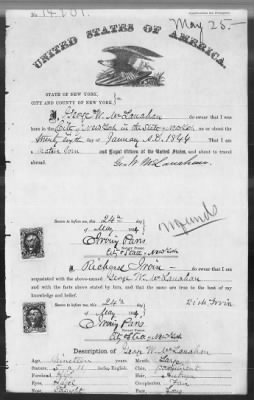 May 25-
UNITED STATES OF AMERICA.
STATE OF NEW YORK,
CITY AND COUNTY OF NEW YORK, ss
I, George W. McLanahan do swear that I was
born in the City of New York in the State on or about the
day of January A.D. 1846
Native Born and loyal citizen of the United States, and about to travel
abroad. Geo. W. McLanahan
Sworn to before me, this 24th
day of May 186
Irving Paris
Notary Public
City & State New York
I, Richard Irvin do swear that I am
acquainted with the above-named George W. McLanahan
and with the facts above stated by him, and that the same are true to the best of my
knowledge and belief.
Rich. Irvin
Sworn to before me, this 24th
day of May 186
Irving Paris
Notary Public
City & State New York
Description of George W. McLanahan
Age, Nineteen
Mouth, Large
Stature, 5 " 11 Inches, English.
Chin, Prominent
Forehead, High
Hair,
Eyes, Hazel
Complexion, Fair
Nose,
Face, Long